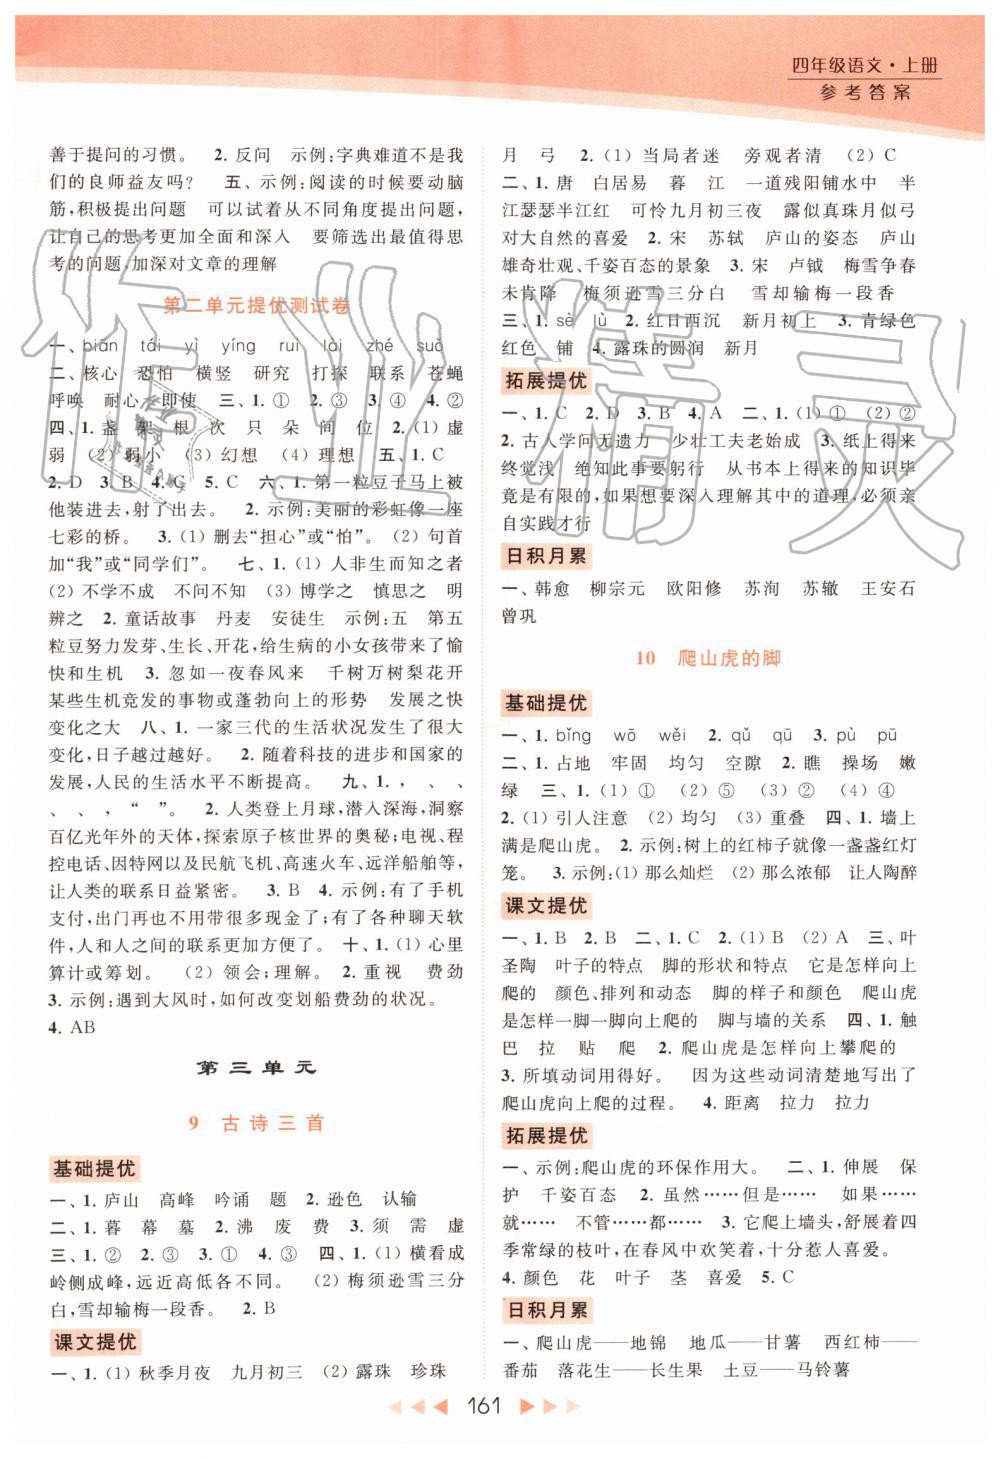 四年级语文·上册
参考答案
善于提问的习惯。 2. 反问 示例:字典难道不是我
们的良师益友吗? 五、示例:阅读的时候要动脑
筋,积极提出问题 可以试着从不同角度提出问题,
让自己的思考更加全面和深入 要筛选出最值得思
考的问题,加深对文章的理解
第二单元提优测试卷
一、biān tái yì yíng ruì lài zhé suǒ
二、核心 恐怕 横竖 研究 打探 联系 苍蝇
呼唤 耐心 即使 三、1. ① 2. ③ 3. ④ 4. ②
四、1. 盏 架 根 次 只 朵 间 位 2. (1) 虚
弱 (2) 弱小 (3) 幻想 (4) 理想 五、1. C
2. D 3. B 4. C 5. C 六、1. 第一粒豆子马上被
他装进去,射了出去。 2. 示例:美丽的彩虹像一座
七彩的桥。 3. (1) 删去“担心”或“怕”。 (2) 句首
加“我”或“同学们”。 七、1. (1) 人非生而知之者
(2) 不学不成 不问不知 (3) 博学之 慎思之 明
辨之 2. 童话故事 丹麦 安徒生 示例:五 第五
粒豆努力发芽、生长、开花,给生病的小女孩带来了愉
快和生机 3. 忽如一夜春风来 千树万树梨花开
某些生机竞发的事物或蓬勃向上的形势 发展之快
变化之大 八、1. 一家三代的生活状况发生了很大
变化,日子越过越好。 2. 随着科技的进步和国家的
发展,人民的生活水平不断提高。 九、1. , 、 、
、 、 , “ ”。 2. 人类登上月球,潜入深海,洞察
百亿光年外的天体,探索原子核世界的奥秘;电视、程
控电话、因特网以及民航飞机、高速火车、远洋船舶等,
让人类的联系日益紧密。 3. B 4. 示例:有了手机
支付,出门再也不用带很多现金了;有了各种聊天软
件,人和人之间的联系更加方便了。 十、1. (1) 心里
算计或筹划。 (2) 领会;理解。 2. 重视 费劲
3. 示例:遇到大风时,如何改变划船费劲的状况。
4. AB
第三单元
9 古诗三首
基础提优
一、1. 庐山 高峰 吟诵 题 2. 逊色 认输
二、1. 暮 幕 墓 2. 沸 废 费 3. 须 需 虚
三、1. ② 2. ③ 3. ① 4. ③ 四、1. (1) 横看成
岭侧成峰,远近高低各不同。 (2) 梅须逊雪三分
白,雪却输梅一段香。 2. B
课文提优
一、1. (1) 秋季月夜 九月初三 (2) 露珠 珍珠
月 弓 2. (1) 当局者迷 旁观者清 (2) C
二、1. 唐 白居易 暮 江 一道残阳铺水中 半
江瑟瑟半江红 可怜九月初三夜 露似真珠月似弓
对大自然的喜爱 2. 宋 苏轼 庐山的姿态 庐山
雄奇壮观、千姿百态的景象 3. 宋 卢钺 梅雪争春
未肯降 梅须逊雪三分白 雪却输梅一段香
三、1. sè lù 2. 红日西沉 新月初上 3. 青绿色
红色 铺 4. 露珠的圆润 新月
拓展提优
一、1. C 2. D 3. B 4. A 二、1. (1) ① (2) ②
2. 古人学问无遗力 少壮工夫老始成 3. 纸上得来
终觉浅 绝知此事要躬行 从书本上得来的知识毕
竟是有限的,如果想要深入理解其中的道理,必须亲
自实践才行
日积月累
一、韩愈 柳宗元 欧阳修 苏洵 苏辙 王安石
曾巩
10 爬山虎的脚
基础提优
一、1. bǐng wō wěi 2. qǔ qū 3. pù pū
二、1. 占地 牢固 均匀 空隙 2. 瞧 操场 嫩
绿 三、1. (1) ① (2) ⑤ (3) ② (4) ④
2. (1) 引人注意 (2) 均匀 (3) 重叠 四、1. 墙上
满是爬山虎。 2. 示例:树上的红柿子就像一盏盏红灯
笼。 3. 示例:(1) 那么灿烂 (2) 那么浓郁 让人陶醉
课文提优
一、1. B 2. B 二、1. C 2. (1) B (2) A 三、叶
圣陶 叶子的特点 脚的形状和特点 它是怎样往上
爬的 颜色、排列和动态 脚的样子和颜色 爬山虎
是怎样一脚一脚向上爬的 脚与墙的关系 四、1. 触
巴 拉 贴 爬 2. 爬山虎是怎样向上攀爬的
3. 所填动词用得好。 因为这些动词清楚地写出了
爬山虎向上爬的过程。 4. 距离 拉力 拉力
拓展提优
一、示例:爬山虎的环保作用大。 二、1. 伸展 保
护 千姿百态 2. 虽然……但是…… 如果……
就…… 不管……都…… 3. 它爬上墙头,舒展着四
季常绿的枝叶,在春风中欢笑着,十分惹人喜爱。
4. 颜色 花 叶子 茎 喜爱 5. C
日积月累
一、爬山虎——地锦 地瓜——甘薯 西红柿——
番茄 落花生——长生果 土豆——马铃薯
161
作业精灵